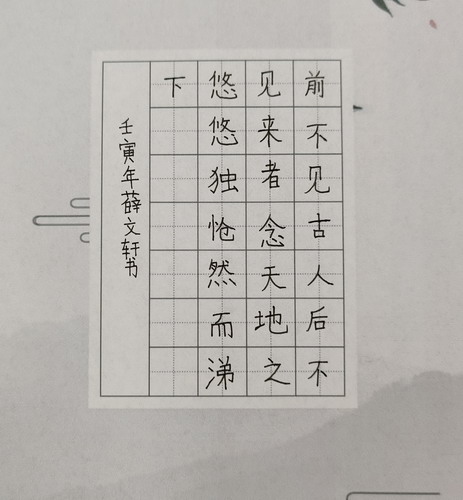 前不见古人后不
见来者念天地之
悠悠独怆然而涕
下
壬寅年薛文轩书